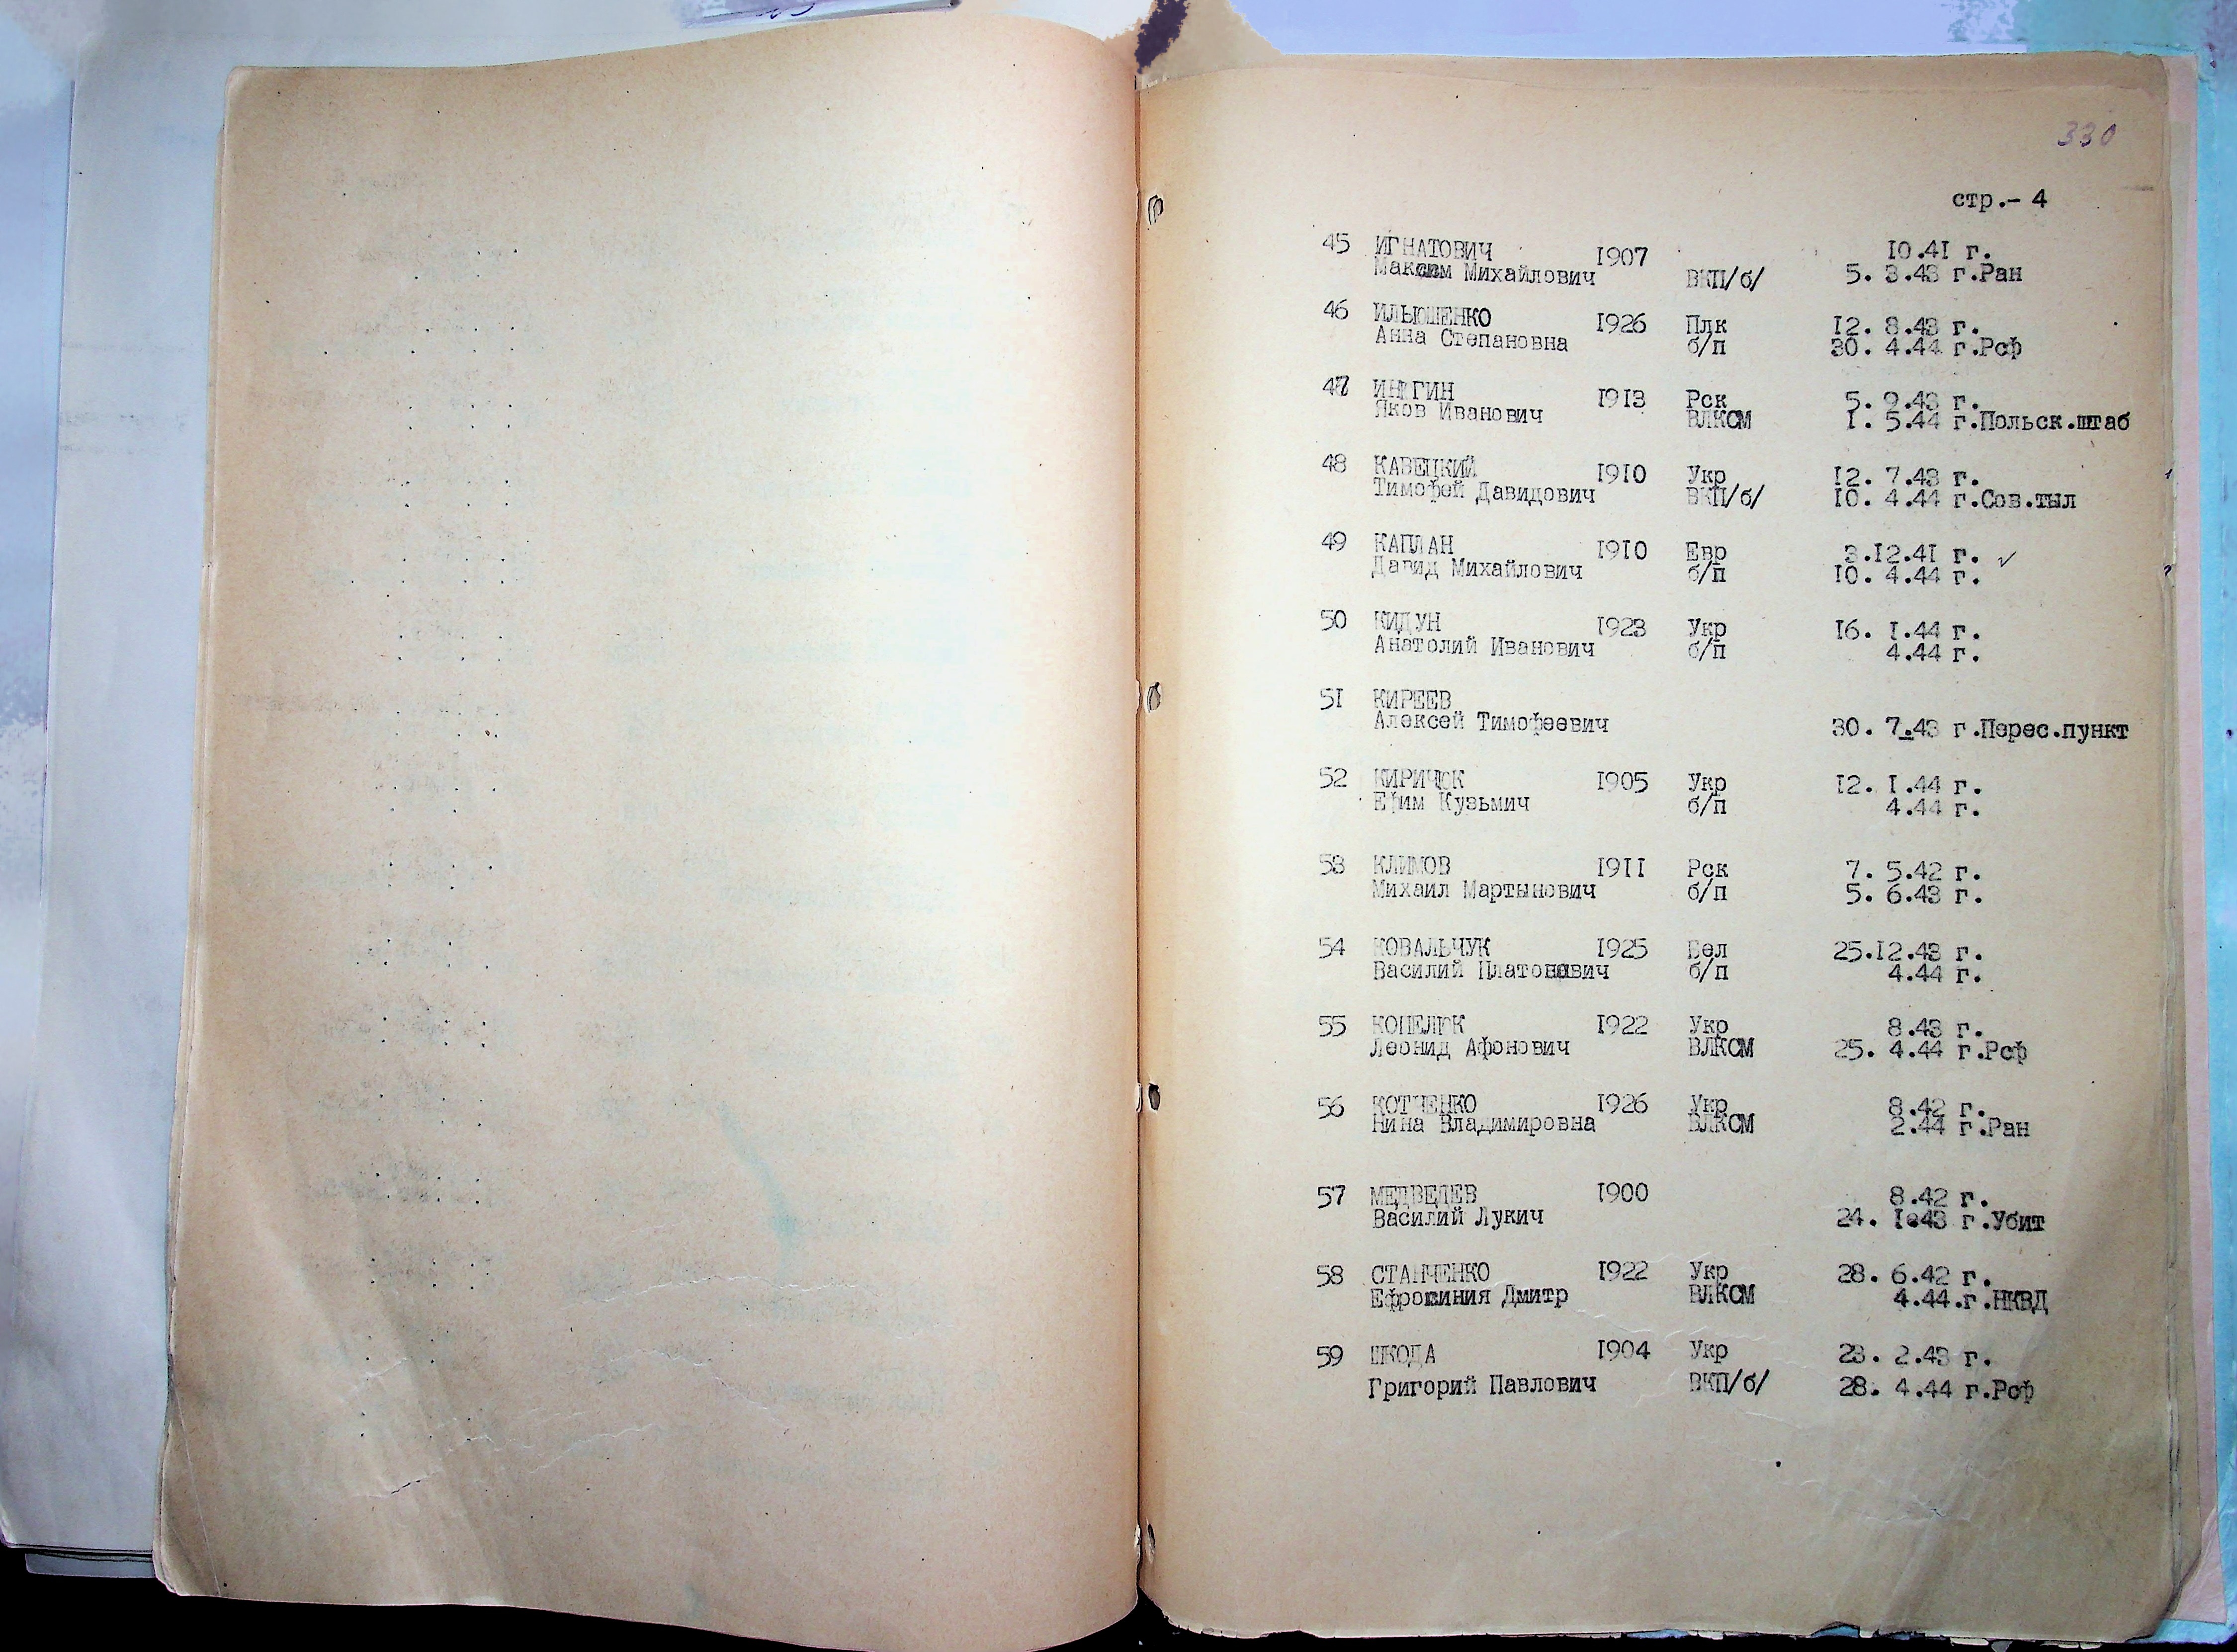 330
стр.- 4
45 ИГНАТОВИЧ 1907 10.41 г.
Максим Михайлович ВКП/б/ 5. 3.43 г.Ран
46 ИЛЬЮШЕНКО 1926 Плк 12. 8.43 г.
Анна Степановна б/п 30. 4.44 г.Рсф
47 1913 Рск 5. 9.43 г.
Яков Иванович ВЛКСМ 1. 5.44 г.Польск.штаб
48 КАВЕЦКИЙ 1910 Укр 12. 7.43 г.
Тимофей Давидович ВКП/б/ 10. 4.44 г.Сов.тыл
49 КАПЛАН 1910 Евр 3.12.41 г. ✓
Давид Михайлович б/п 10. 4.44 г.
50 КИДУН 1923 Укр 16. 1.44 г.
Анатолий Иванович б/п 4.44 г.
51 КИРЕЕВ
Алексей Тимофеевич 30. 7.43 г.Перес.пункт
52 КИРИЧЮК 1905 Укр 12. 1.44 г.
Ефим Кузьмич б/п 4.44 г.
53 КЛИМОВ 1911 Рск 7. 5.42 г.
Михаил Мартынович б/п 5. 6.43 г.
54 КОВАЛЬЧУК 1925 Бел 25.12.43 г.
Василий Платонович б/п 4.44 г.
55 КОПЕЛЮК 1922 Укр 8.43 г.
Леонид Афонович ВЛКСМ 25. 4.44 г.Рсф
56 КОТЧЕНКО 1926 Укр 8.42 г.
Нина Владимировна ВЛКСМ 2.44 г.Ран
57 МЕДВЕДЕВ 1900 8.42 г.
Василий Лукич 24. г.Убит
58 СТАНЧЕНКО 1922 Укр 28. 6.42 г.
Ефросиния Дмитр ВЛКСМ 4.44.г.НКВД
59 ШКОДА 1904 Укр 23. 2.43 г.
Григорий Павлович ВКП/б/ 28. 4.44 г.Рсф